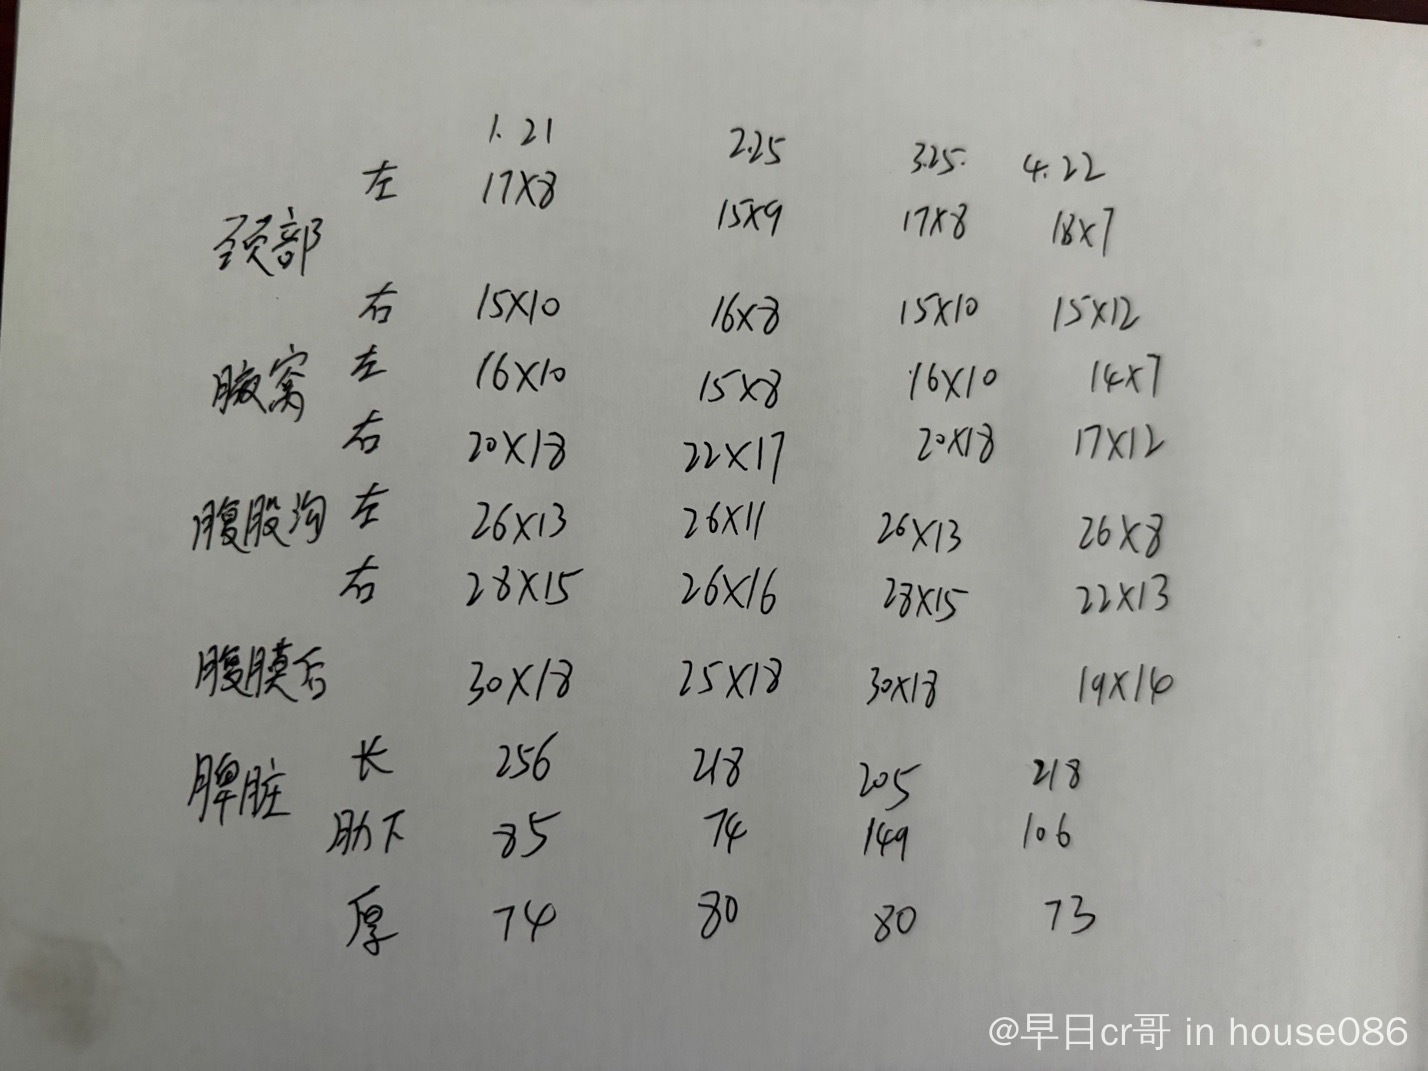 1.21 2.25 3.25. 4.22
颈部 左 17X8 15X9 17X8 18X7
右 15X10 16X8 15X10 15X12
腋窝 左 16X10 15X8 16X10 14X7
右 20X18 22X17 20X18 17X12
腹股沟 左 26X13 26X11 26X13 26X8
右 28X15 26X16 28X15 22X13
腹膜后 30X18 25X18 30X18 19X14
脾脏 长 256 218 205 218
肋下 85 74 149 106
厚 74 80 80 73
@早日cr哥 in house086